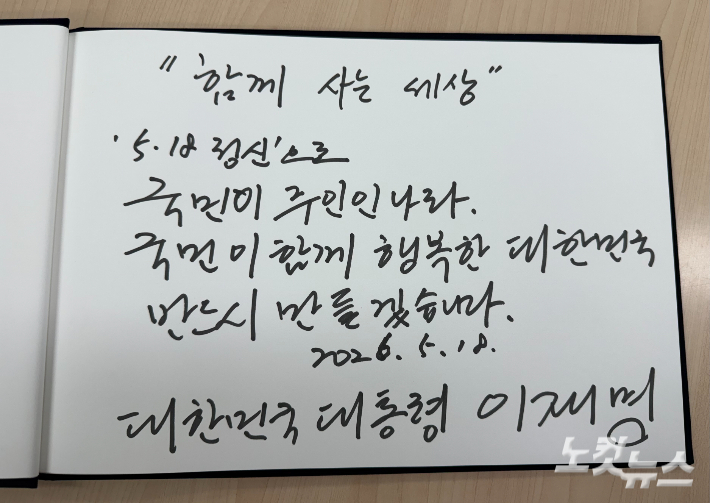 "함께 사는 세상"
'5.18 정신'으로
국민이 주인인 나라.
국민이 함께 행복한 대한민국
반드시 만들겠습니다.
2026. 5. 18.
대한민국 대통령 이재명
노컷뉴스